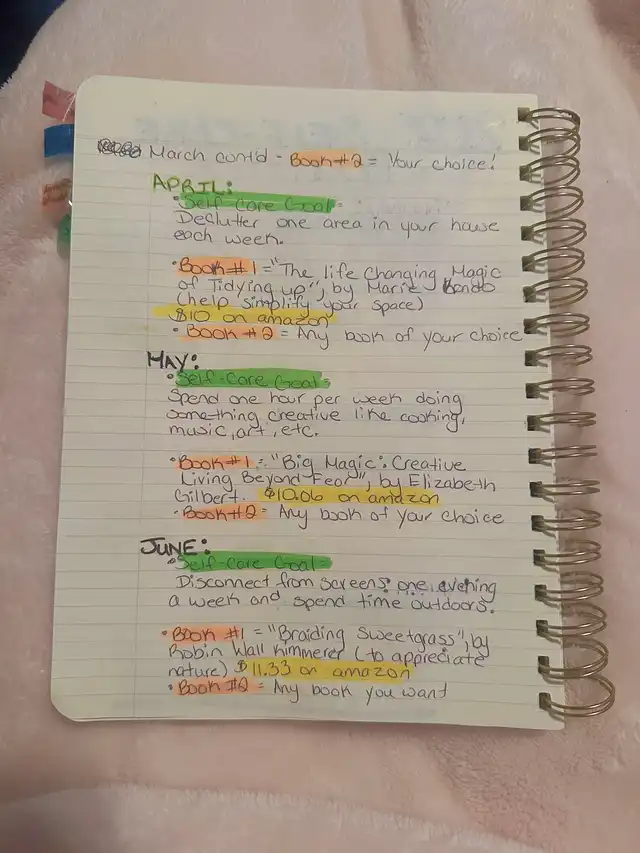 March cont'd - Book #2 = Your choice!
APRIL:
• Self-Care Goal=
Declutter one area in your house
each week.
• Book #1 = "The life Changing Magic
of Tidying up", by Marie Kondo
(help simplify your space)
$10 on amazon
• Book #2 = Any book of your choice
MAY:
• Self-Care Goal=
Spend one hour per week doing
something creative like cooking,
music, art, etc.
• Book #1 = "Big Magic: Creative
Living Beyond Fear", by Elizabeth
Gilbert. $10.06 on amazon
• Book #2 = Any book of your choice
JUNE:
• Self-Care Goal=
Disconnect from screens one evening
a week and spend time outdoors.
• Book #1 = "Braiding Sweetgrass", by
Robin Wall Kimmerer (to appreciate
nature) $11.33 on amazon
• Book #2 = Any book you want